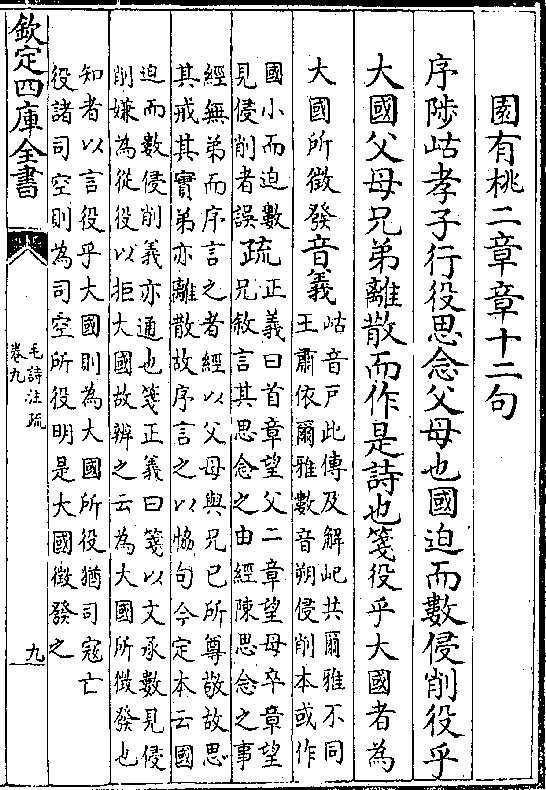 園有桃二章章十二句
序陟岵孝子行役思念父母也國迫而數侵削役乎
大國父母兄弟離散而作是詩也箋役乎大國者為
大國所徵發音義
岵音户此傳及解屺共爾雅不同
王肅依爾雅數音朔侵削本或作
國小而迫數
見侵削者誤
疏
正義曰首章望父二章望母卒章望
兄敘言其思念之由經陳思念之事
經無弟而序言之者經以父母與兄已所尊敬故思
其戒其實弟亦離散故序言之以恊句今定本云國
迫而數侵削義亦通也箋正義曰箋以文承數見侵
削嫌為從役以拒大國故辨之云為大國所徵發也
知者以言役乎大國則為大國所役猶司寇亡
役諸司空則為司空所役明是大國徵發之
欽定四庫全書
毛詩注疏
卷九
九